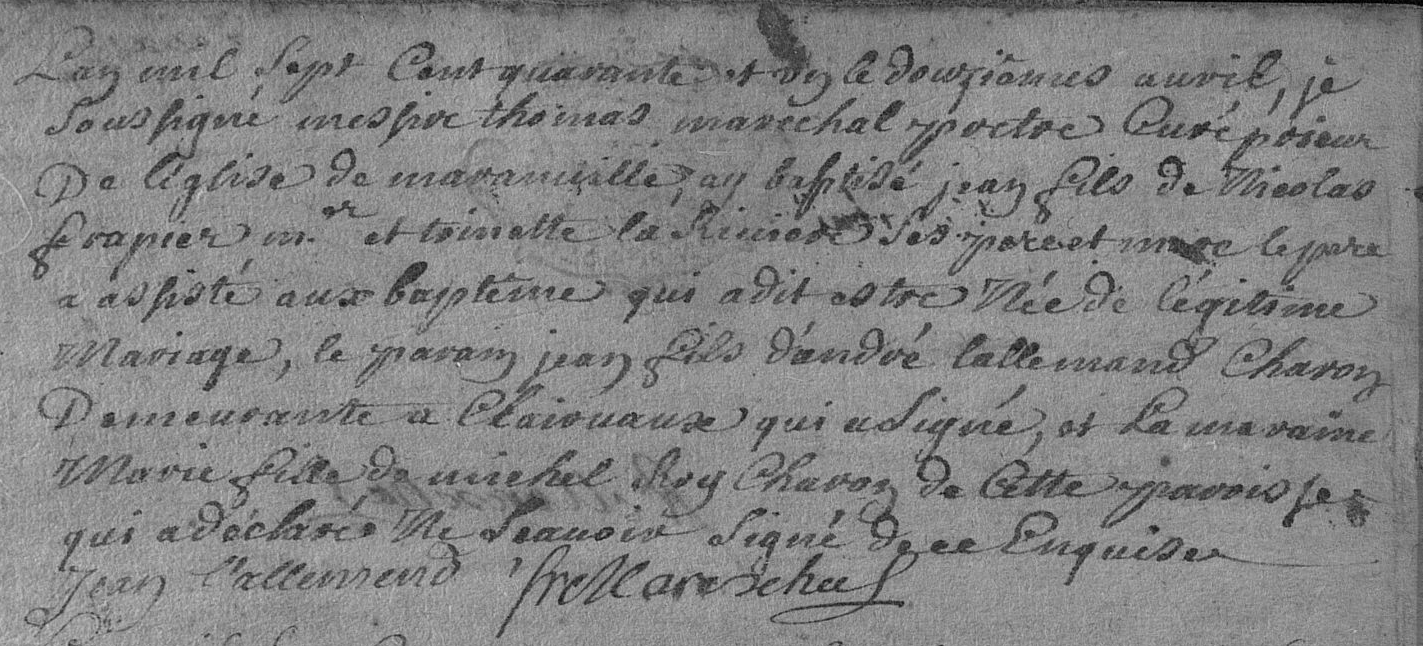 L'an mil Sept Cent quarante et un le douziemes auvril, je
Soussigné messire thomas marechal pretre Curé prieur
De l'Eglise de maranuille, ay baptisé jean fils de Nicolas
frapier m.er et toinette la Riviere Ses pere et mere le pere
a assisté aux baptême qui a dit estre Née de légitime
Mariage, le parain jean fils d'andré lallemand Charon
Demeurante a Clairuaux qui a Signé, et La maraine
Marie fille de michel Roy Charon de Cette paroisse
qui a déclarée Ne Scauoir Signé de ce Enquise
Jean l'allemend fre Mareschal